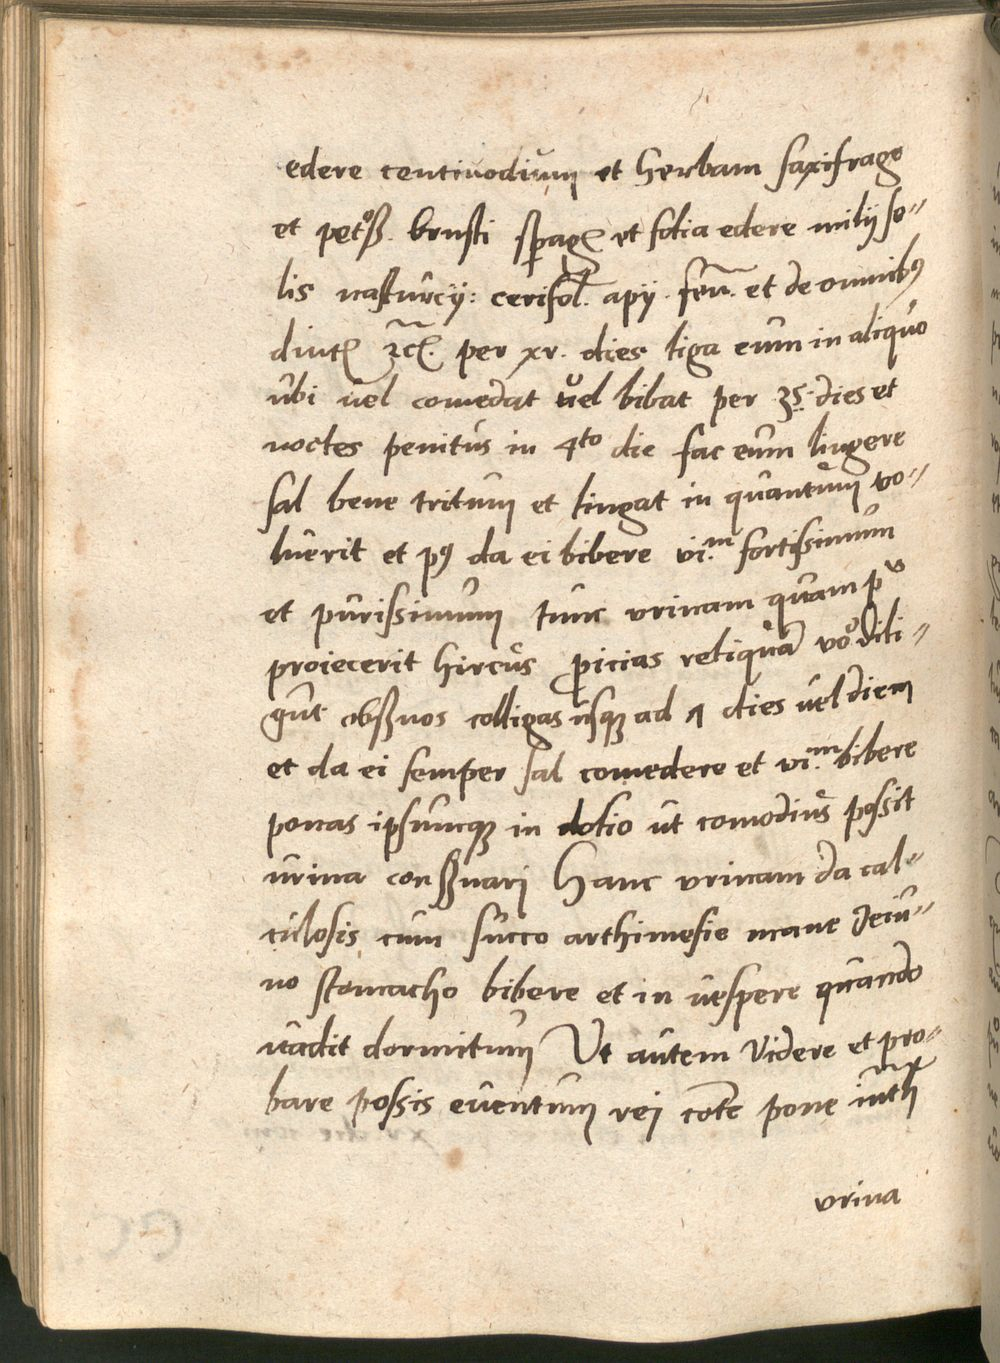 edere centinodium et herbam saxifrage
et petoß. brusti sparag et folia edere milij so-
lis nasturcij: cerifol. apij. fen. et de omnibꝰ
diut per xv. dies liga eum in aliquo
ubi uel comedat uel bibat per dies et
noctes penitus in 4to die fac eum lingere
sal bene tritum et lingat in quantum vo-
luerit et pꝰ da ei bibere vi.m fortissimum
et purissimum tunc urinam quam po
proiecerit hircus ꝓicias reliquā vo dili-
gnt obßuos colligas usqꝫ ad dies uel diem
et da ei semper sal comedere et vi.m bibere
ponas ipsumqꝫ in dolio ut comodius possit
urina conßuari Hanc urinam da cal-
culosis cum succo arthimesie mane Jeiu-
no stomacho bibere et in uespere quando
uadit dormitum Vt autem Videre et pro-
bare possis euentum rei pone
urina